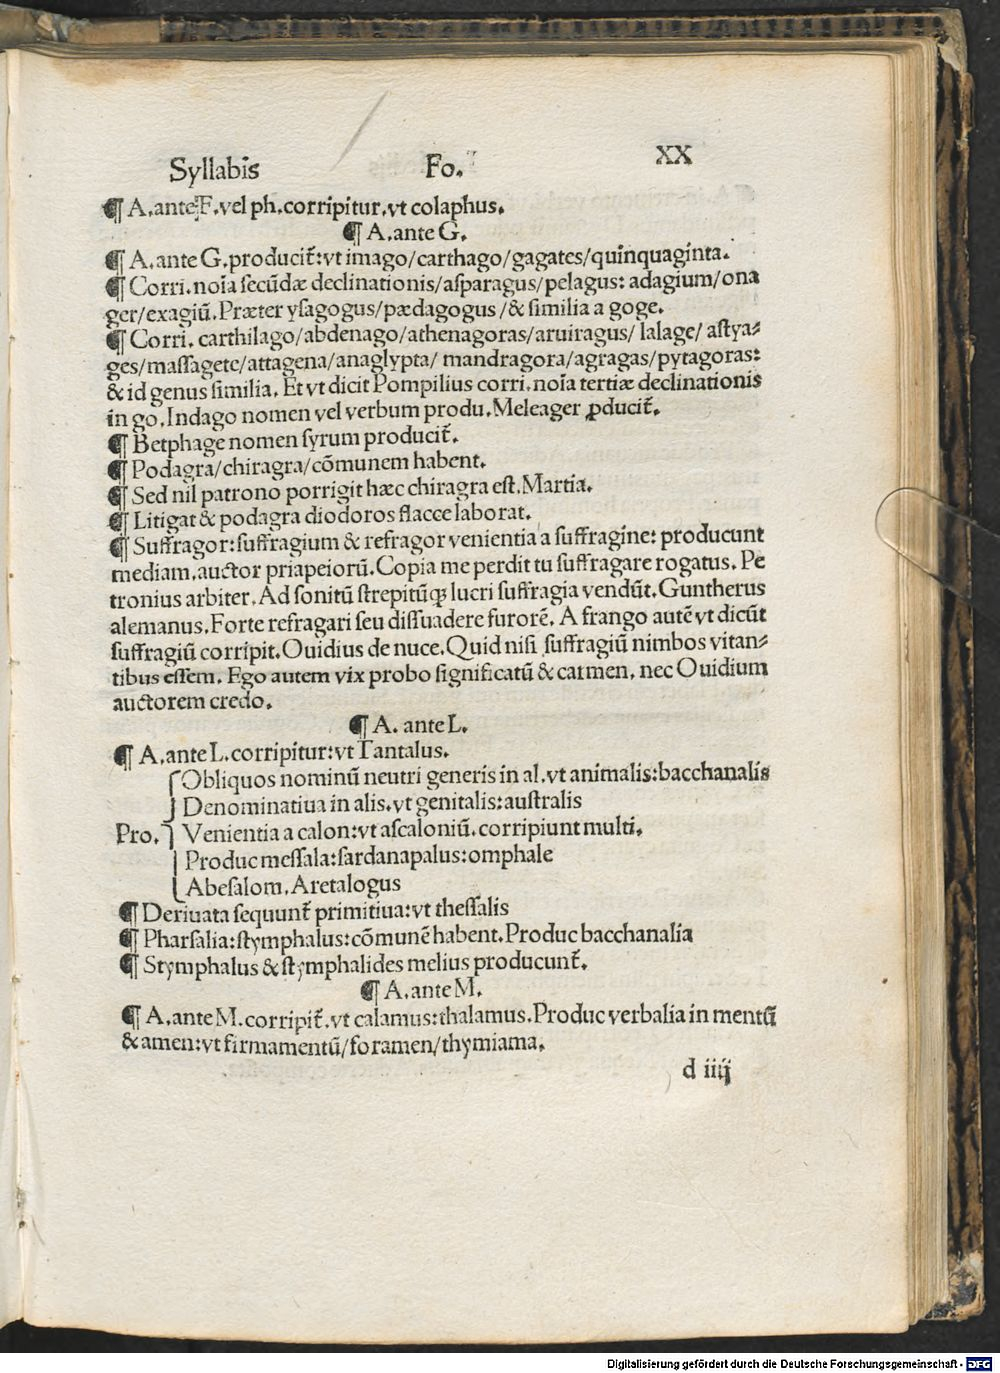 Syllabis Fo. XX
¶ A.ante F.vel ph.corripitur.vt colaphus.
¶ A.ante G.
¶ A.ante G.producit̃:vt imago/carthago/gagates/quinquaginta.
¶ Corri.noĩa ſecũdæ declinationis/aſparagus/pelagus: adagium/ona
ger/exagiũ.Præter yſagogus/pædagogus/& ſimilia a goge.
¶ Corri. carthilago/abdenago/athenagoras/aruiragus/ lalage/ aſtya⸗
ges/maſſagete/attagena/anaglypta/ mandragora/agragas/pytagoras:
& id genus ſimilia. Et vt dicit Pompilius corri.noĩa tertiæ declinationis
in go.Indago nomen vel verbum produ.Meleager ꝓducit̃.
¶ Betphage nomen ſyrum producit̃.
¶ Podagra/chiragra/cõmunem habent.
¶ Sed nil patrono porrigit hæc chiragra eſt.Martia.
¶ Litigat & podagra diodoros flacce laborat.
¶ Suffragor:ſuffragium & refragor venientia a ſuffragine: producunt
mediam.auctor priapeiorũ.Copia me perdit tu ſuffragare rogatus. Pe
tronius arbiter.Ad ſonitũ ſtrepitũq̃ lucri ſuffragia vendũt.Guntherus
alemanus.Forte refragari ſeu diſſuadere furorẽ. A frango autẽ vt dicũt
ſuffragiũ corripit.Ouidius de nuce.Quid niſi ſuffragiũ nimbos vitan⸗
tibus eſſem. Ego autem vix probo ſignificatũ & carmen, nec Ouidium
auctorem credo.
¶ A. ante L.
¶ A.ante L.corripitur:vt Tantalus.
Obliquos nominũ neutri generis in al.vt animalis:bacchanalis
Denominatiua in alis.vt genitalis:auſtralis
Pro. Venientia a calon:vt aſcaloniũ.corripiunt multi.
Produc meſſala:ſardanapalus:omphale
Abeſalom.Aretalogus
¶ Deriuata ſequunt̃ primitiua:vt theſſalis
¶ Pharſalia:ſtymphalus:cõmunẽ habent.Produc bacchanalia
¶ Stymphalus & ſtymphalides melius producunt̃.
¶ A.ante M.
¶ A.ante M.corripit̃.vt calamus:thalamus.Produc verbalia in mentũ
& amen:vt firmamentũ/foramen/thymiama.
d iiij
Digitalisierung gefördert durch die Deutsche Forschungsgemeinschaft - DFG